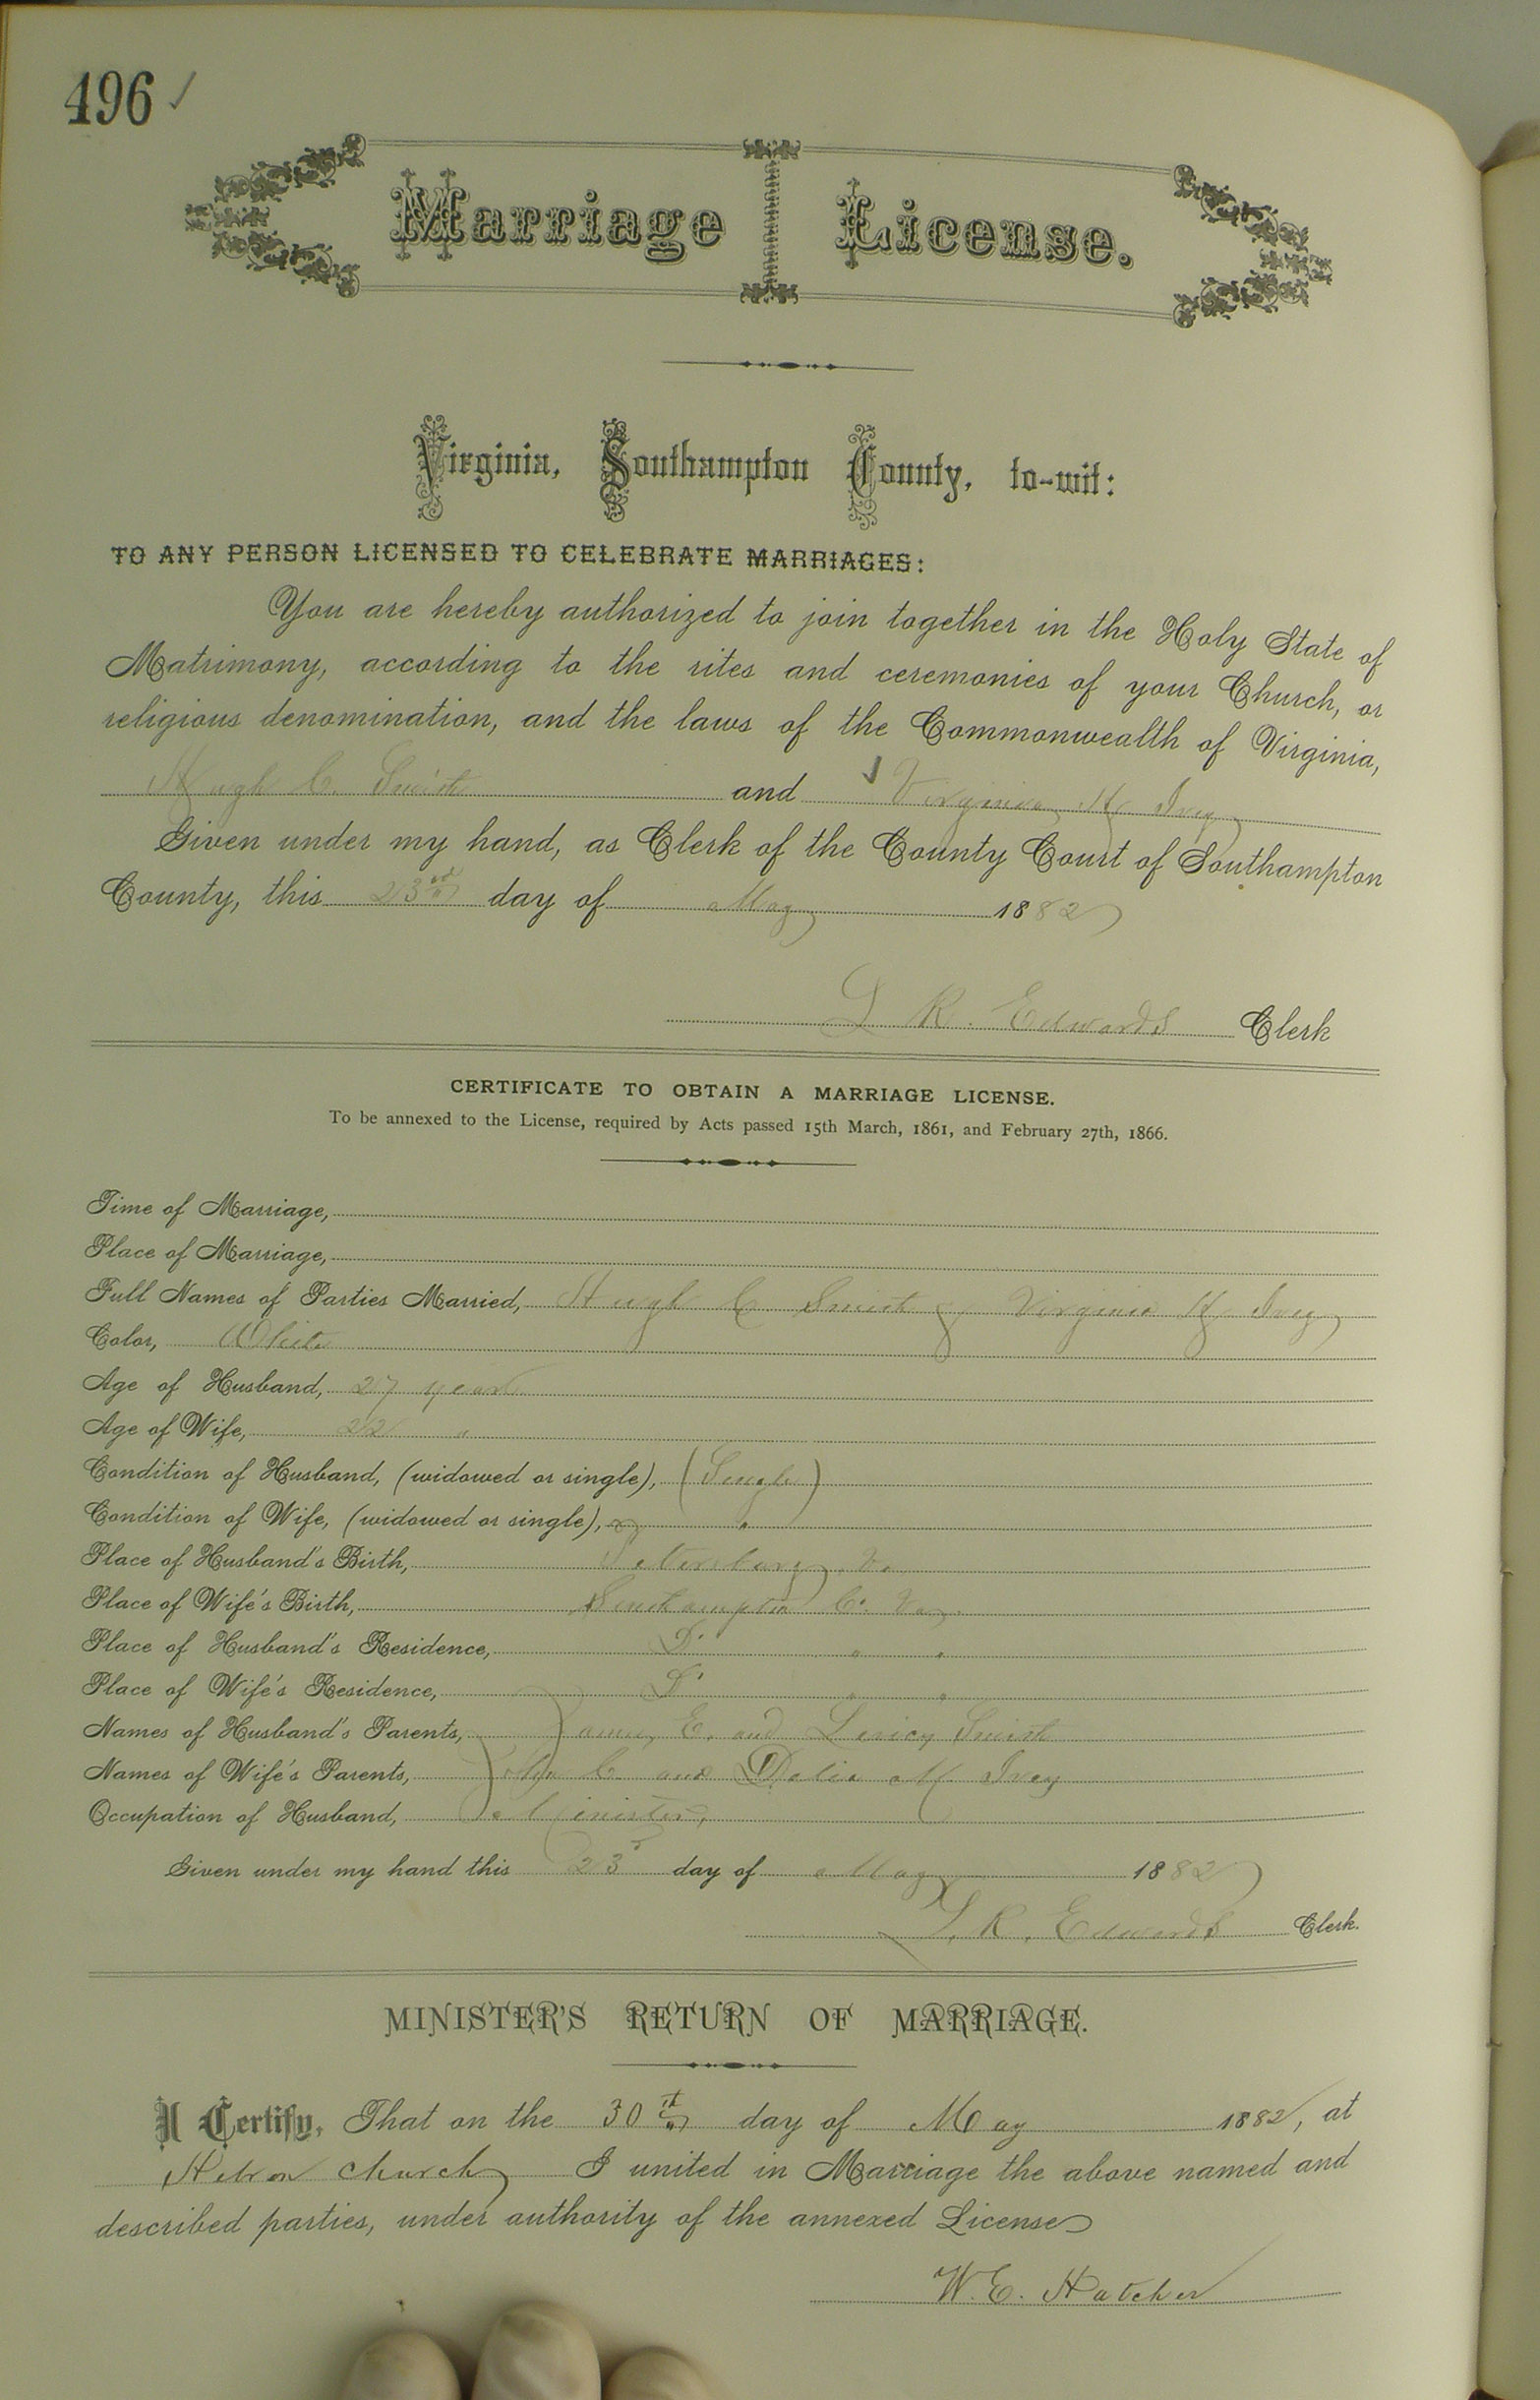 496 ✓
Marriage License.
Virginia, Southampton County, to-wit:
TO ANY PERSON LICENSED TO CELEBRATE MARRIAGES:
You are hereby authorized to join together in the Holy State of
Matrimony, according to the rites and ceremonies of your Church, or
religious denomination, and the laws of the Commonwealth of Virginia,
Hugh C. Smith and ✓ Virginia H Ivey
Given under my hand, as Clerk of the County Court of Southampton
County, this 23rd day of May 1882
L R. Edwards Clerk
CERTIFICATE TO OBTAIN A MARRIAGE LICENSE.
To be annexed to the License, required by Acts passed 15th March, 1861, and February 27th, 1866.
Time of Marriage,
Place of Marriage,
Full Names of Parties Married, Hugh C Smith & Virginia H Ivey
Color, White
Age of Husband, 27 years
Age of Wife, 22 "
Condition of Husband, (widowed or single), (Single)
Condition of Wife, (widowed or single), "
Place of Husband's Birth, Petersburg, Va.
Place of Wife's Birth, Southampton Co. Va.
Place of Husband's Residence, Do " "
Place of Wife's Residence, Do " "
Names of Husband's Parents, James E. and Smith
Names of Wife's Parents, C and Delia M Ivey
Occupation of Husband, Minister,
Given under my hand this 23d day of May 1882
L. R. Edwards Clerk.
MINISTER'S RETURN OF MARRIAGE.
I Certify, That on the 30th day of May 1882, at
Hebron Church I united in Marriage the above named and
described parties, under authority of the annexed License
W. E. Hatcher